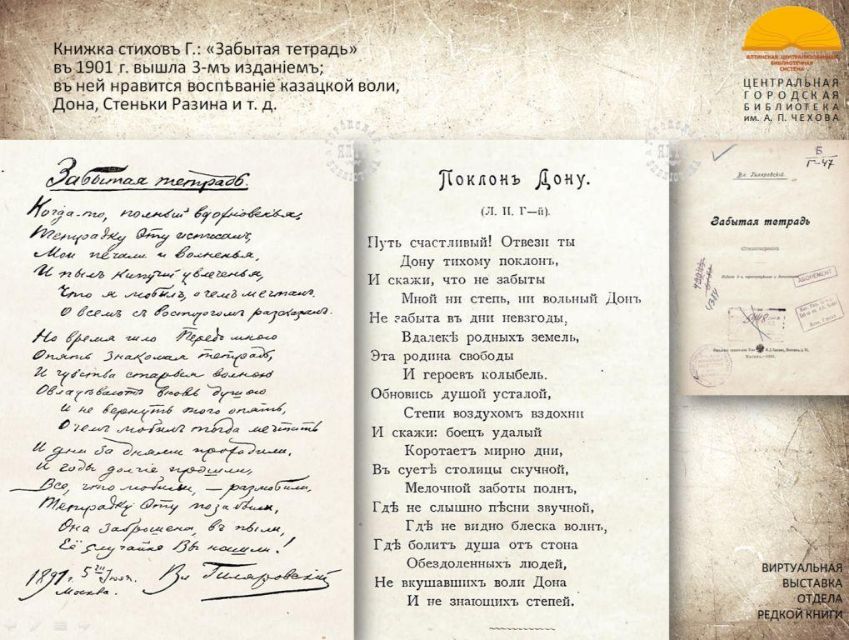 Книжка стиховъ Г.: «Забытая тетрадь»
въ 1901 г. вышла 3-мъ изданіемъ;
въ ней нравится воспѣваніе казацкой воли,
Дона, Стеньки Разина и т. д.
ЯЛТИНСКАЯ ЦЕНТРАЛИЗОВАННАЯ
БИБЛИОТЕЧНАЯ
СИСТЕМА
ЦЕНТРАЛЬНАЯ
ГОРОДСКАЯ
БИБЛИОТЕКА
им. А. П. ЧЕХОВА
Забытая тетрадь.
Когда-то, полный вдохновенья,
Тетрадку эту исписалъ,
Мои печали и волненья,
И пылъ кипучій увлеченья,
Что я любилъ, о чемъ мечталъ.
О всемъ съ восторгомъ разсказалъ.
Но время шло Передо мною
Опять знакомая тетрадь,
И чувства старыя волною
Овладѣваютъ вновь душою
И не вернуть того опять,
О чемъ любилъ тогда мечтать
И дни за днями проходили,
И годы долгіе прошли,
Все, что любили, – разлюбили,
Тетрадку эту позабыли,
Она заброшена, въ пыли,
Её случайно Вы нашли!
189 г. 5 Іюля.
Москва.
Вл Гиляровскій
Поклонъ Дону.
(Л. И. Г—й).
Путь счастливый! Отвези ты
Дону тихому поклонъ,
И скажи, что не забыты
Мной ни степь, ни вольный Донъ
Не забыта въ дни невзгоды,
Вдалекѣ родныхъ земель,
Эта родина свободы
И героевъ колыбель.
Обновись душой усталой,
Степи воздухомъ вздохни
И скажи: боецъ удалый
Коротаетъ мирно дни,
Въ суетѣ столицы скучной,
Мелочной заботы полнъ,
Гдѣ не слышно пѣсни звучной,
Гдѣ не видно блеска волнъ,
Гдѣ болитъ душа отъ стона
Обездоленныхъ людей,
Не вкушавшихъ воли Дона
И не знающихъ степей.
Б
Г-47
Вл. Гиляровскій.
Забытая тетрадь
Стихотворенія
АБОНЕМЕНТ
ВИРТУАЛЬНАЯ
ВЫСТАВКА
ОТДЕЛА
РЕДКОЙ КНИГИ